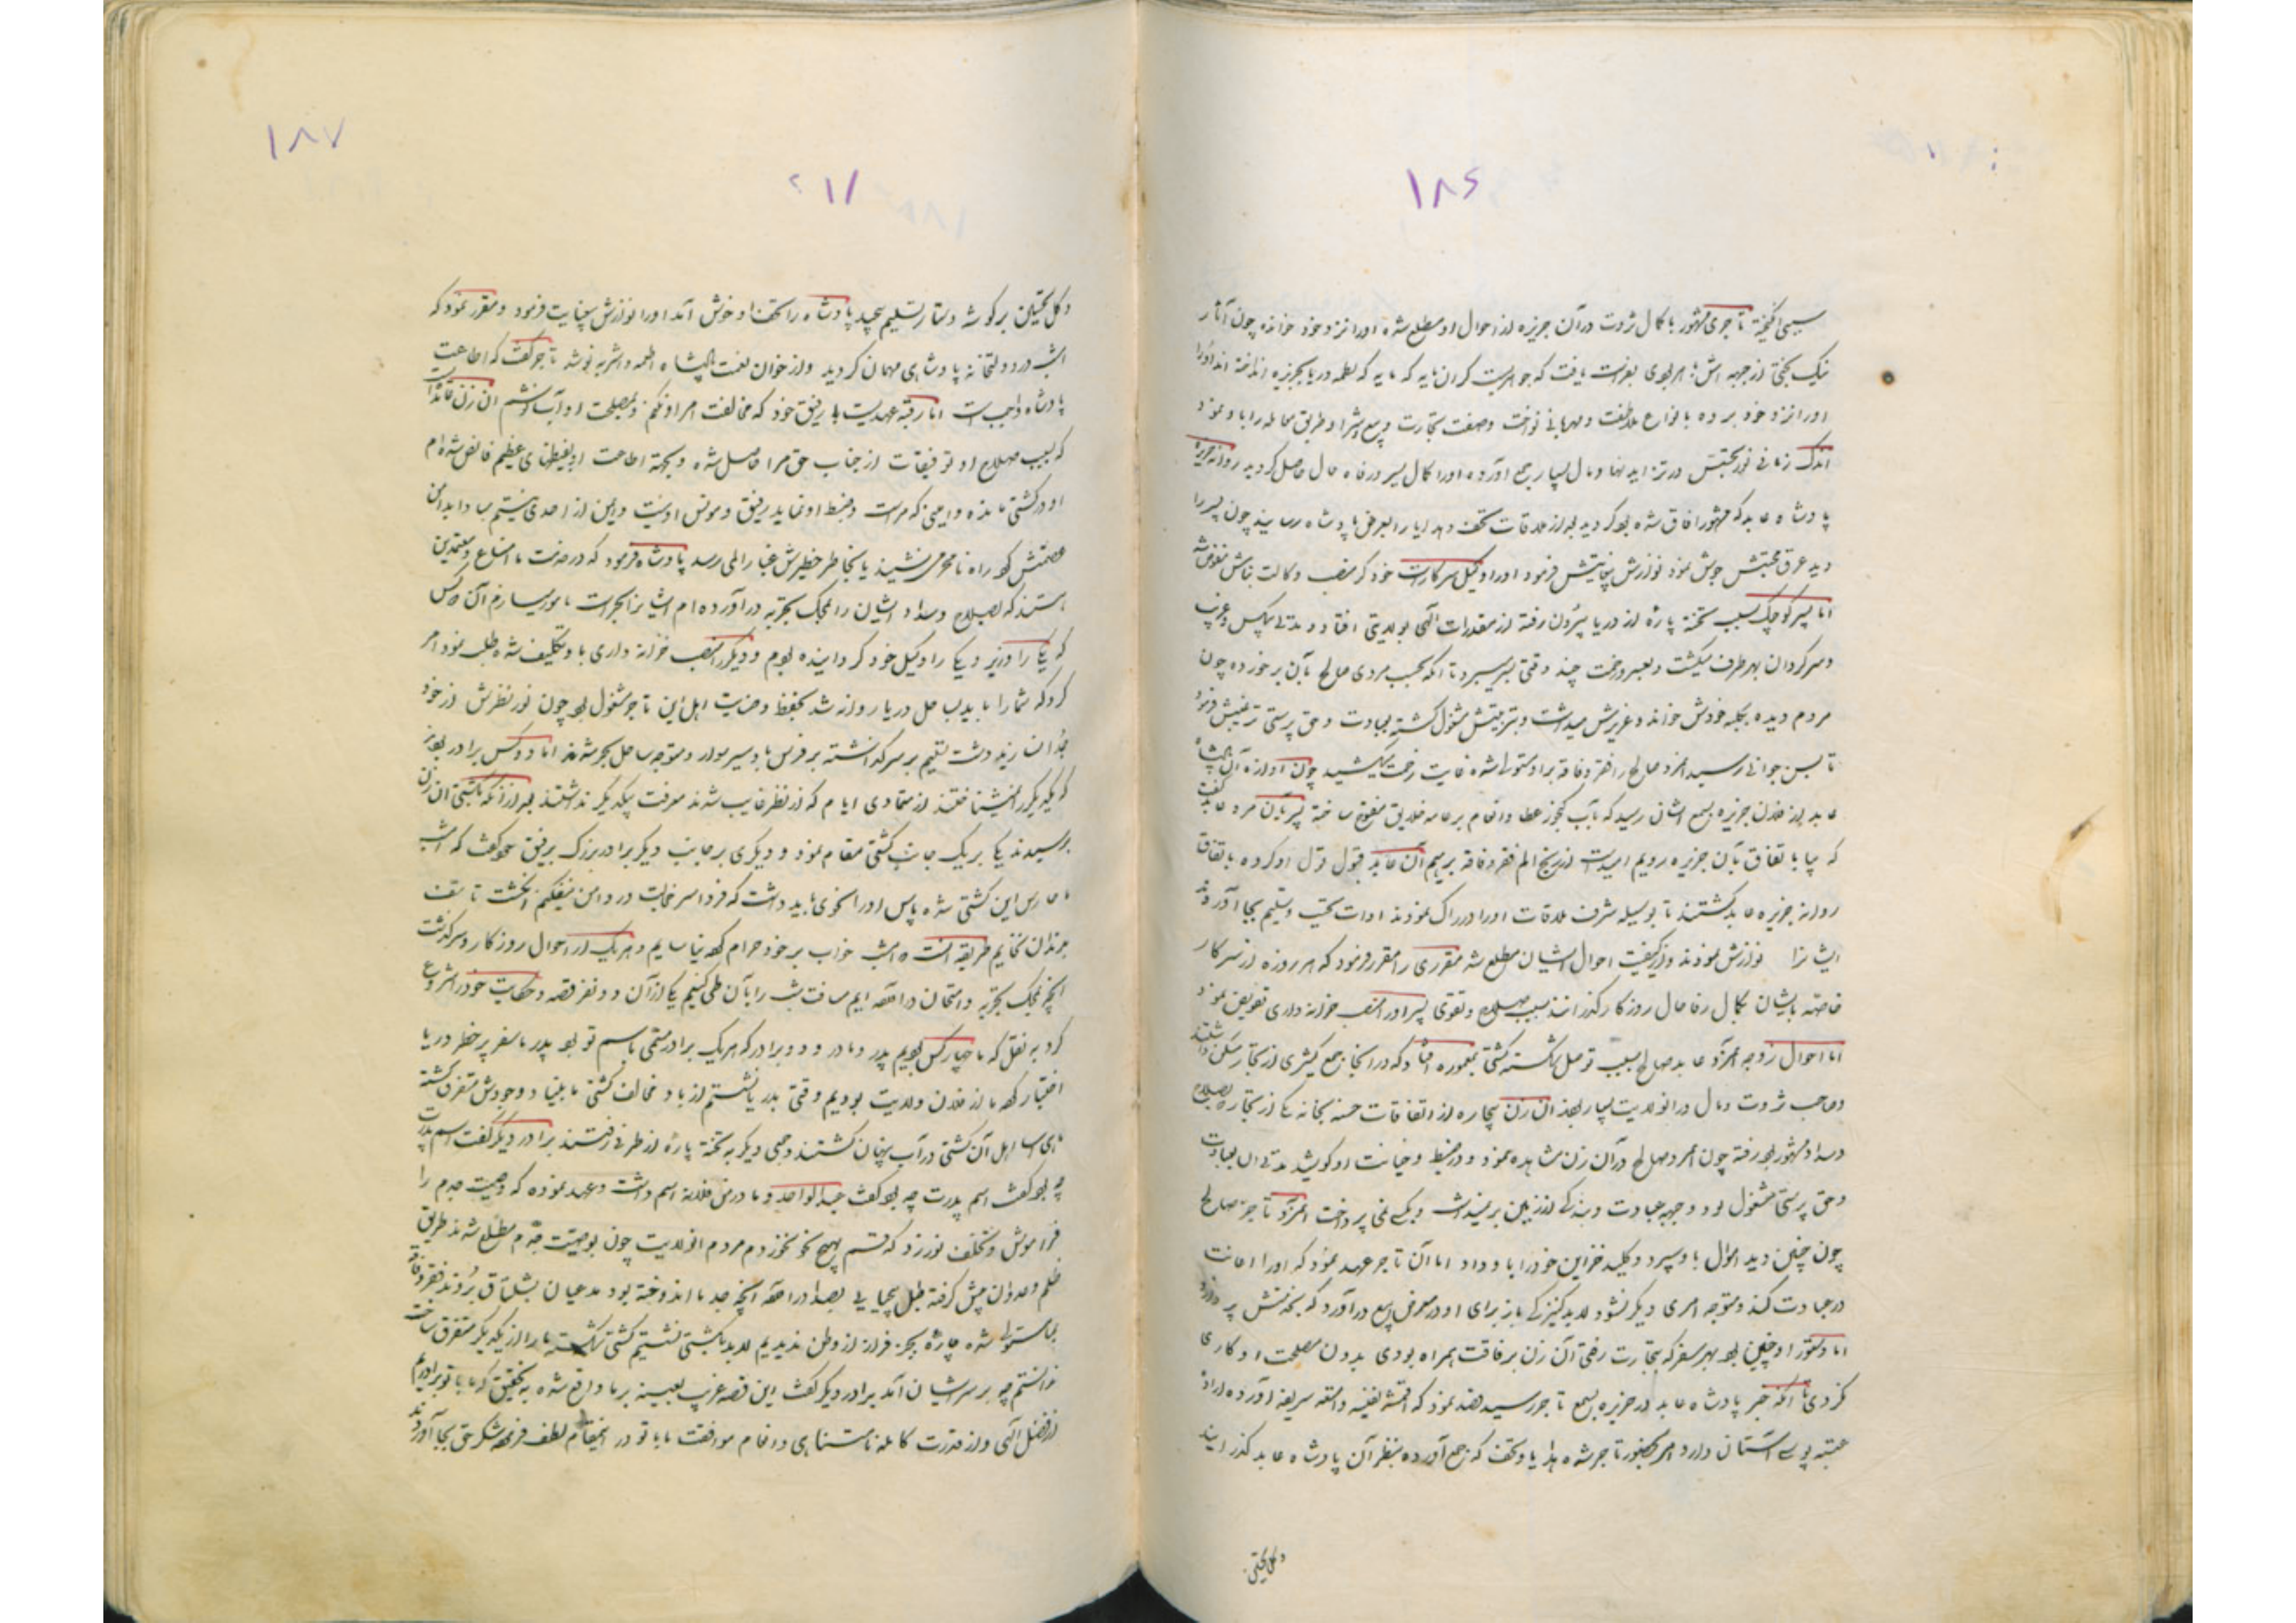 ۱۸۶
سببی انگیخته تاجری مشهور با کمال ثروت در آن جزیره از احوال او مطلع شده او را نزد خود خوانده چون آثار
نیک بختی از جبهه اش یافت که جوهریست گران مایه که بلطمه دریا بجزیره انداخته اند او را
او را نزد خود برده بانواع ملاطفت و مهربانی نواخت وصفت تجارت و بیع و شرا و طریق معامله را باو نمود
اندک زمانی نور بختش در تزاید نهاد و مال بسیار جمع آورده او را کمال یسر و رفاه حال حاصل گردید روانه جزیره
پادشاه عابد که مشهور آفاق شده بود گردید بعد از ملاقات تحف و هدایا را بعرض پادشاه رسانید چون پسر را
دید عرق محبتش جوش نمود نوازش بنهایتش فرمود او را وکیل سرکارات خود کرد منصب وکالت بنامش مفوض شد
اما پسر کوچک بسبب تخته پاره از دریا بیرون رفته از مقدرات الهی بولایتی افتاد و مدتی بیکس و غریب
و سرگردان بهر طرف میگشت و بعسر وقت چند وقتی بسر میبرد تا آنکه بحسب مردی صالح بآن برخورده چون
مردم دیده بکلبه خودش خوانده عزیزش میداشت و بتربیتش مشغول گشته بعبادت و حق پرستی ترغیبش فرمود
تا بسن جوانی رسید امرد صالح را فقر و فاقه بر او مستولی شده نهایت زحمت میکشید چون آوازه آن پادشاه
عابد از فلان جزیره بسمع ایشان رسید که باب کنجوز عطا و انعام بر عامه خلایق مفتوح ساخته پسر بآن مرد عابد گفت
که بیا باتفاق بآن جزیره رویم امید است از رنج الم فقر و فاقه برهیم آن عابد قبول قول او کرده باتفاق
روانه جزیره عابد گشتند تا بوسیله شرف ملاقات او را ادراک نمودند ادات تحیت و تسلیم بجا آوردند
ایشانرا نوازش نمودند و از کیفیت احوال ایشان مطلع شد مقرری را مقرر فرمود که هر روزه از سرکار
خاصه بایشان بکمال رفاه حال روزگار گذرانند بسبب صلاح و تقوی پسر را در منصب خزانه داری تفویض نمود
اما احوال زوجه امرد عابد صالح بسبب توصل شکسته کشتی بمعموره افتاد که در آنجا جمع کثیری از تجار سکنی داشتند
و صاحب ثروت و مال در آنولایت بسیار بودند آن زن بیچاره از اتفاقات حسنه بخانه یکی از تجار که بصلاح
و سداد مشهور بود رفته چون امرد صالح در آن زن مشاهده نمود و در ضبط و خیانت او کوشید مدتی آن بعبادت
و حق پرستی مشغول بود و جبهه عبادت و بندگی از زمین برنمیداشت و بکسی نمی پرداخت امرد تاجر صالح
چون چنین دید اموال باو سپرد و کلید خزاین خود را باو داد اما آن تاجر عهد نمود که او را اعانت
در عبادت کند و متوجه امری دیگر نشود لابد کنیزکی باز برای او در معرض بیع درآورد که بخدمتش پردازد
اما دستور او چنین بود بهر سفر که بتجارت رفتی آن زن برفاقت همراه بودی بدون مصلحت او کاری
نکردی تا آنکه خبر پادشاه عابد در جزیره بسمع تاجر رسید قصد نمود که اقمشه نفیسه و امتعه شریفه آورده اراده
عتبه بوسی آستان دارد امر بحضور تاجر شده هدایا و تحف که جمع آورده بنظر آن پادشاه عابد گذرانید
و کل یحتین
۱۸۷
۲۱۱
و کل یحتین بر گوشه دستار تسلیم پیچید پادشاه را تحفها او خوش آمد او را نوازش بنهایت فرمود و مقرر نمود که
امشب در دولتخانه پادشاهی مهمان گردید و از خوان نعمت پادشاه اطعمه و اشربه نوشد تاجر گفت که اطاعت
پادشاه واجبست اما رفته عهدیست با رفیق خود که مخالفت امر او نکنم و بمصلحت او آب ننوشم آن زن قائد
که بسبب صلاح او توفیقات از جناب حق مرا حاصل شده و بجهة اطاعت او بفیضهای عظیم فائض شده ام
او در کشتی مانده و امینی که مراست و ضبط او نماید رفیق و مونس او نیست و ایمن از احدی نیستم مبادا بدامن
عصمتش گرد راه نامحرمی نشیند یا بخاطر خطیرش غبار المی رسد پادشاه فرمود که در خدمت ما امناء و معتمدین
هستند که بصلاح و سداد ایشان را بمحک تجربه درآورده ام ایشانرا بحراست مامور سازم آن دو کس
که یکی را وزیر و یکی را وکیل خود گردانیده بودم و دیگر را منصب خزانه داری باو تکلیف شده طلب نمود امر
کرد که شما را باید بساحل دریا روانه شد بحفظ و حمایت اهل این تاجر مشغول بود چون نور نظرش از خود
جدا ن دست تسلیم بر سر گذاشته بر فرس باد سیر سوار و متوجه ساحل بحر شدند اما دو کس برادر بودند
که یکدیگر را نشناختند از تمادی ایام که از نظر غایب شدند معرفت بیکدیگر نداشتند بعد از آنکه بکشتی آن زن
برسیدند یکی بر یک جانب کشتی مقام نمود و دیگری بر جانب دیگر برادر بزرگ برفیق خود گفت که امشب
ما حارس این کشتی شده پاس او را نیکوئی باید داشت که فردا سر خجالت در دامن نیفکنیم انگشت تأسف
بدندان نخائیم طریقه آنست که امشب خواب بر خود حرام کرده نیاسایم و هر یک از احوال روزگار و سرگذشت
آنچه بمحک تجربه و امتحان درآمده ایم مسافت شب را بآن طی کنیم یکی از آن دو نفر قصه و حکایت خود را شروع
کرد به نقل که ما چهار کس بودیم پدر و مادر و دو برادر که هر یک برادر مسمی باسم تو بود پدر ما سفر پر خطر دریا
اختیار کرد ما از فلان ولایت بودیم وقتی بدریا نشستیم از باد مخالف کشتی ما بنیاد وجودش متفرق گشته
ای بسا اهل آن کشتی در آب پنهان گشتند و جمعی دیگر به تخته پاره از طرفی رفتند برادر دیگر گفت اسم پدرت
چه بود گفت اسم پدرت چه بود گفت عبدالواحد و مادر من فلانه اسم داشت و عهد نموده که وصیت جدم را
فراموش و تخلف نورزد که قسم بهیچ نحو نخوردم مردم آنولایت چون بوصیت جدم مطلع شدند طریق
ظلم و عدوان پیش گرفته طبل بیحیائی بصدا درآمد آنچه جد ما اندوخته بود مدعیان بشلتاق بردند فقر و فاقه
بما مستولی شده چاره بجز فرار از وطن ندیدیم لابد بکشتی نشستیم کشتی شکسته ما را از یکدیگر متفرق ساخت
ندانستم چه بر سر ایشان آمد برادر دیگر گفت این قصه غریب بعینه بر ما واقع شده به تحقیق که ما با تو برادریم
از فضل الهی و از قدرت کامله نامتناهی و انعام موافقت ما با تو در اینمقام لطف فرموده شکر حق بجا آوردند